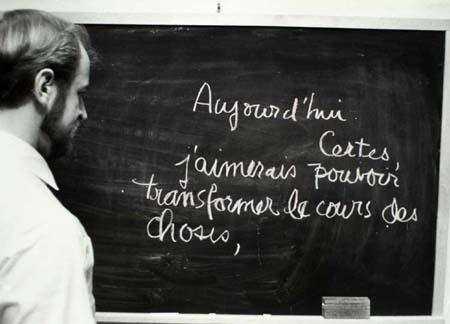 Aujourd'hui
Certes,
j'aimerais pouvoir
transformer le cours des
choses,